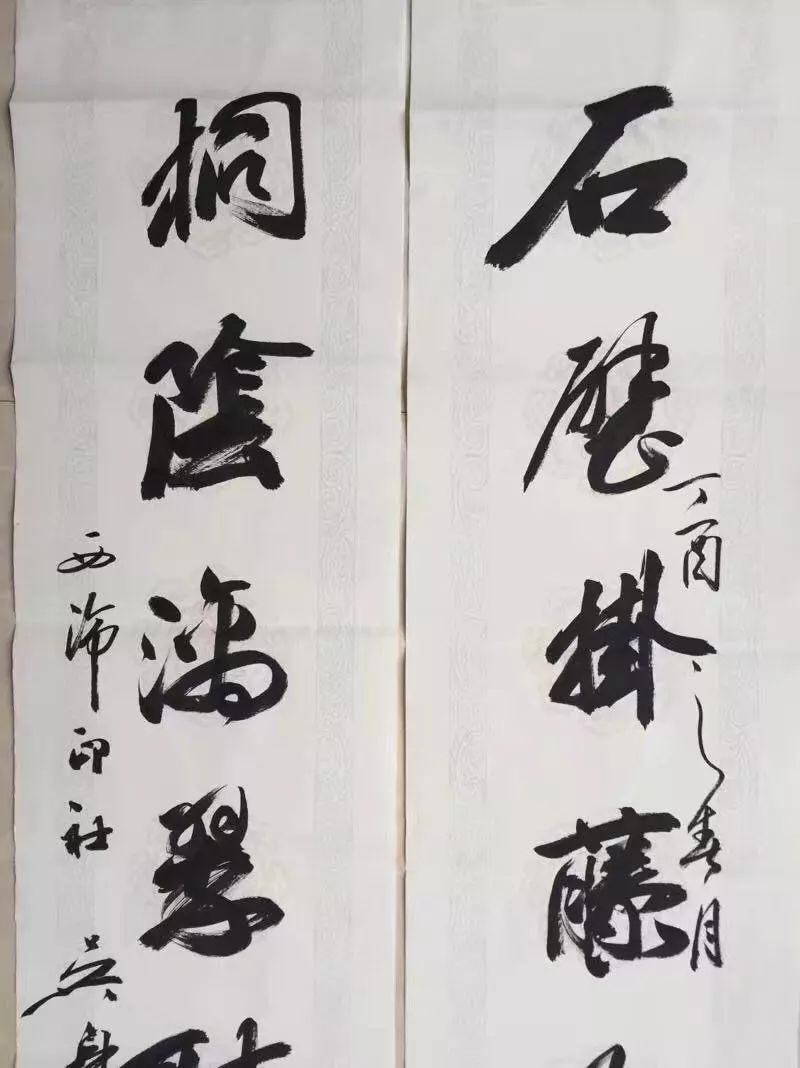 石壁掛藤
丁酉之春月
桐陰滴翠
西泠印社 吴